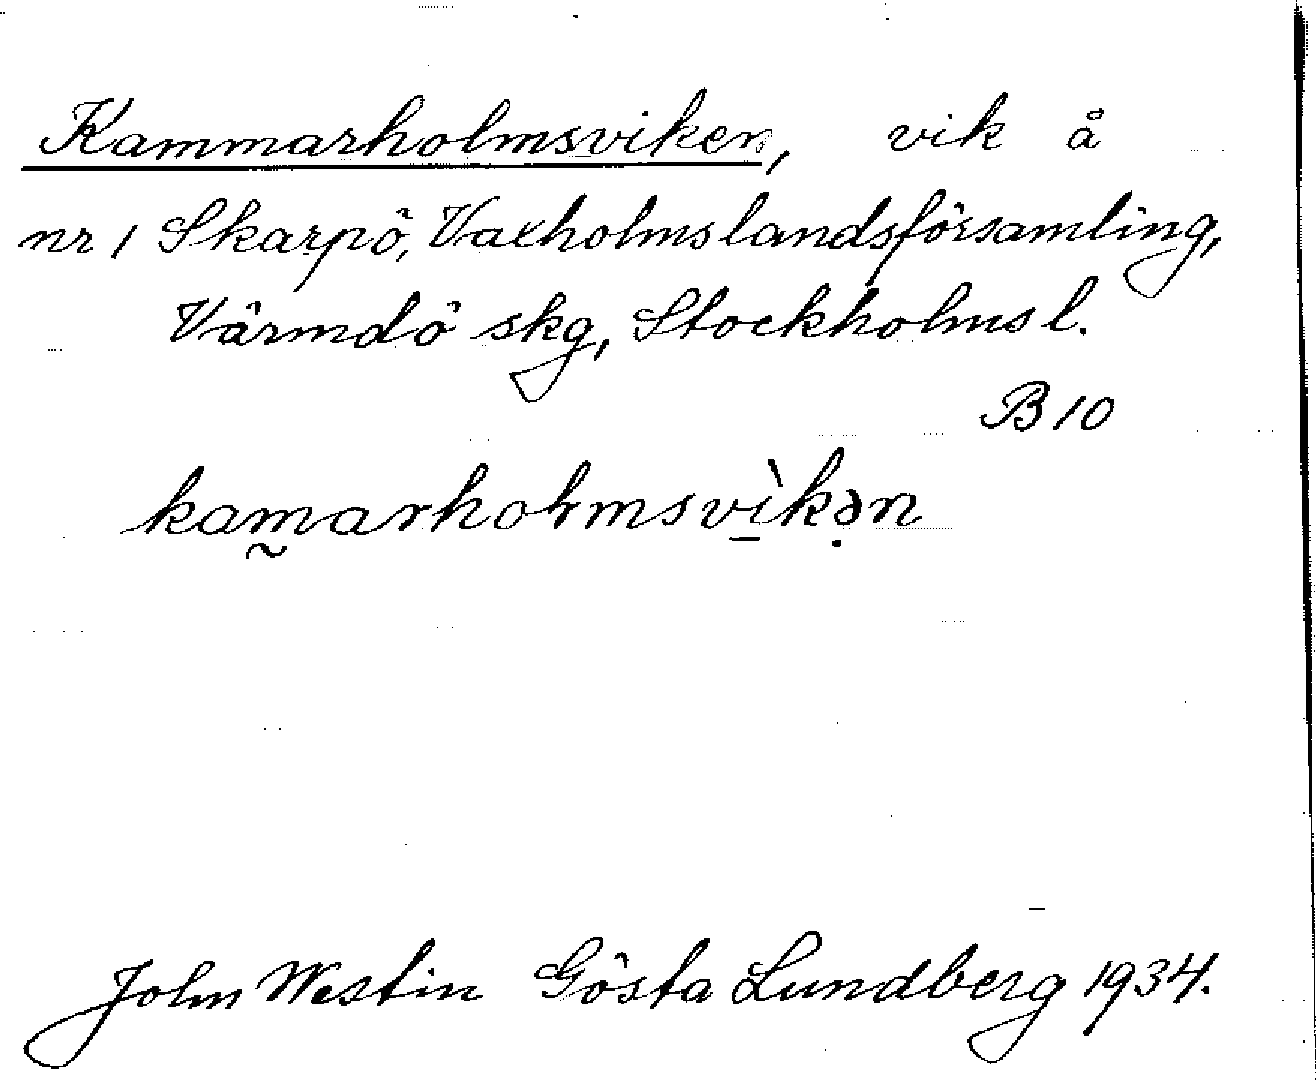 Kammarholmsviken, vik å
nr 1 Skarpö, Vaxholms landsförsamling,
Värmdö skg, Stockholms l.
B 10
kam̰arholmsvì̱kə̣n
John Westin Gösta Lundberg 1934.